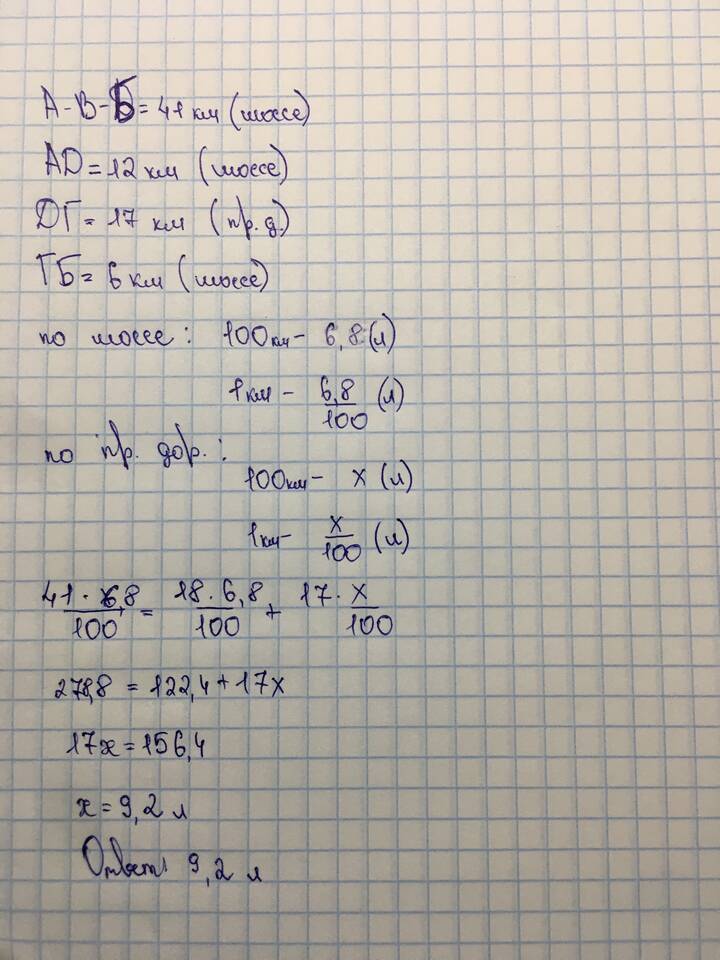 А-В-Б = 41 км (шоссе)
АD = 12 км (шоссе)
DГ = 17 км (пр. д.)
ГБ = 6 км (шоссе)
по шоссе: 100 км - 6,8 (л)
1 км - 6,8/100 (л)
по пр. дор.:
100 км - x (л)
1 км - x/100 (л)
41 · 6,8/100 = 18 · 6,8/100 + 17 · x/100
278,8 = 122,4 + 17x
17x = 156,4
x = 9,2 л
Ответ: 9,2 л